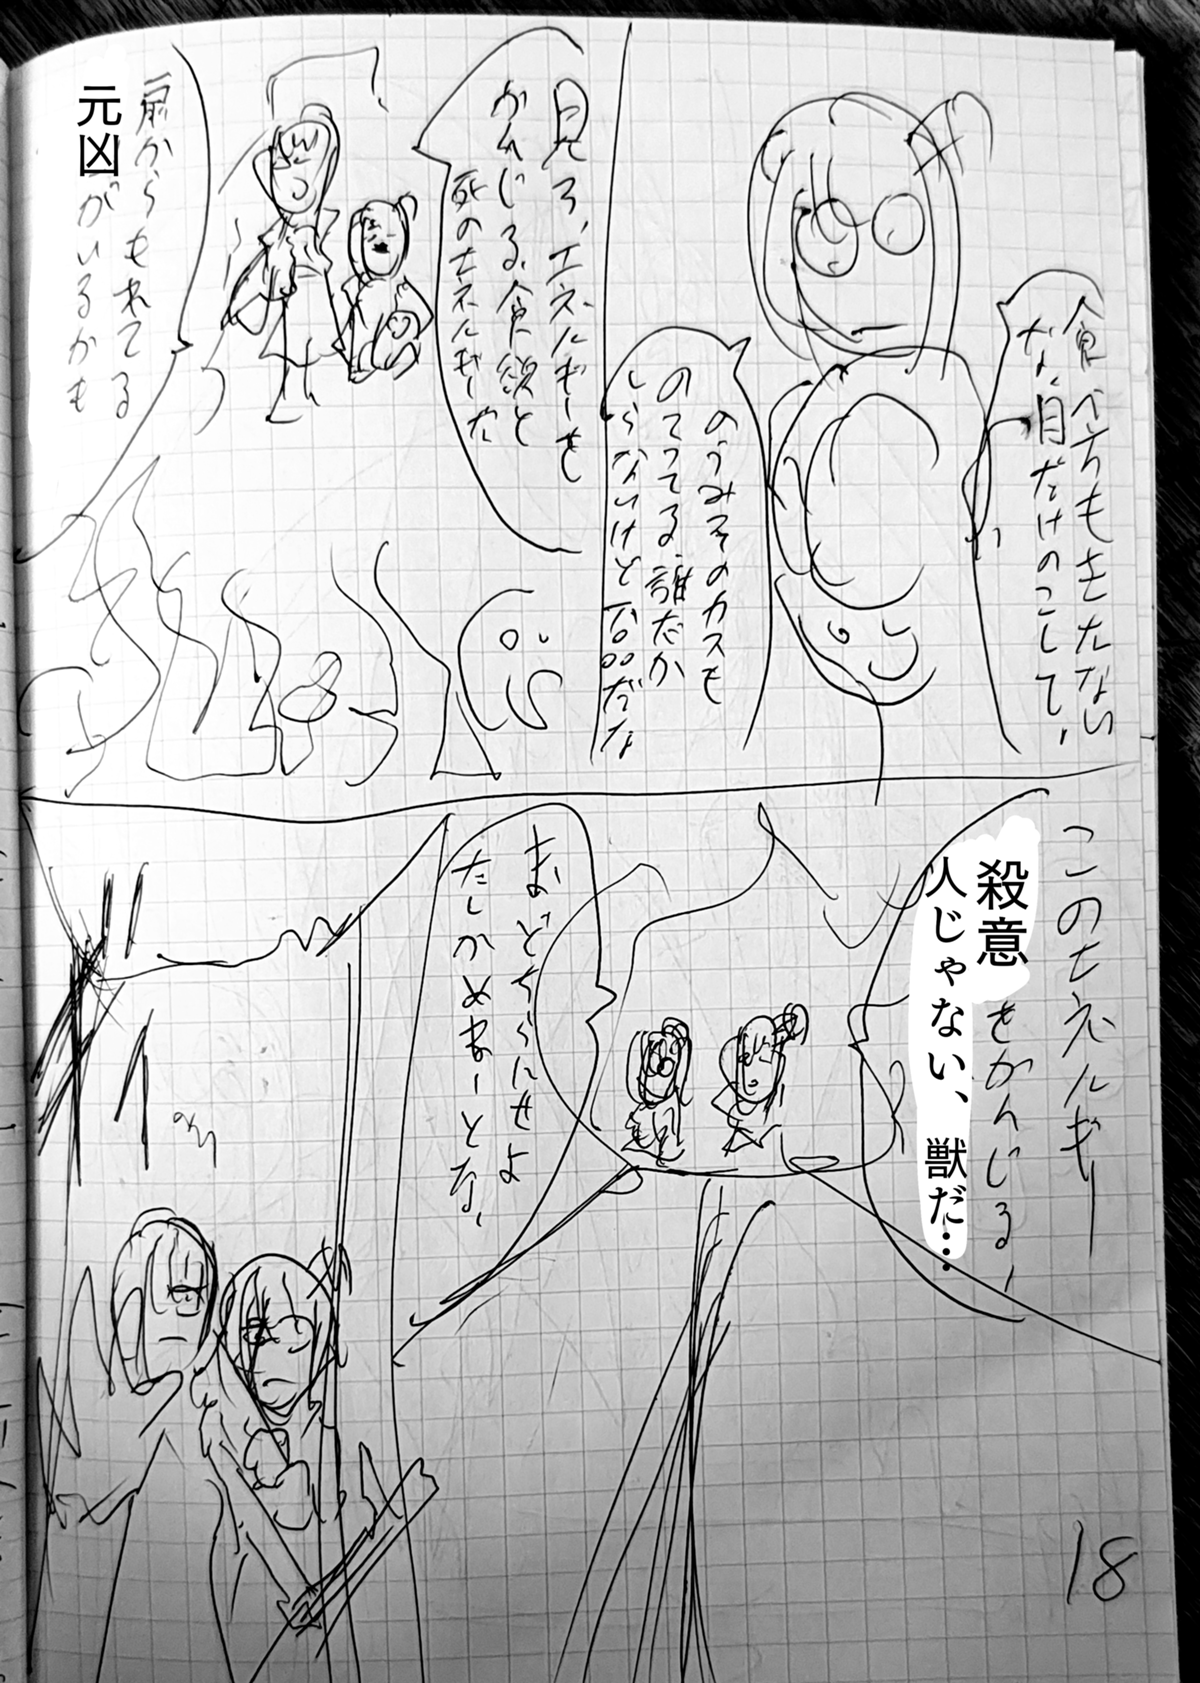 食べ方もきたない
な、目だけのこして、
のうみそのカスも
のってる、誰だか
しらないけど下品だな
見ろ、エネルギーを
かんじる、食欲と
死のエネルギーだ
扉からもれてる
元凶がいるかも
このエネルギー
殺意をかんじる、
人じゃない、獣だ…
まあどちらにせよ
たしかめまーとな、
18